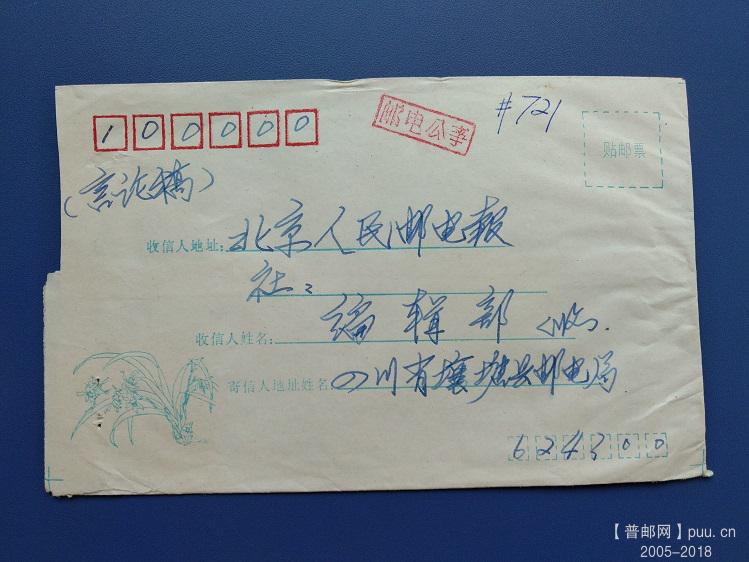 100000
邮电公事
#721
贴邮票
(言论稿)
收信人地址:北京人民邮电报
社:
收信人姓名:编辑部 收
寄信人地址姓名 四川省壤塘县邮电局
624300
【普邮网】puu.cn
2005-2018